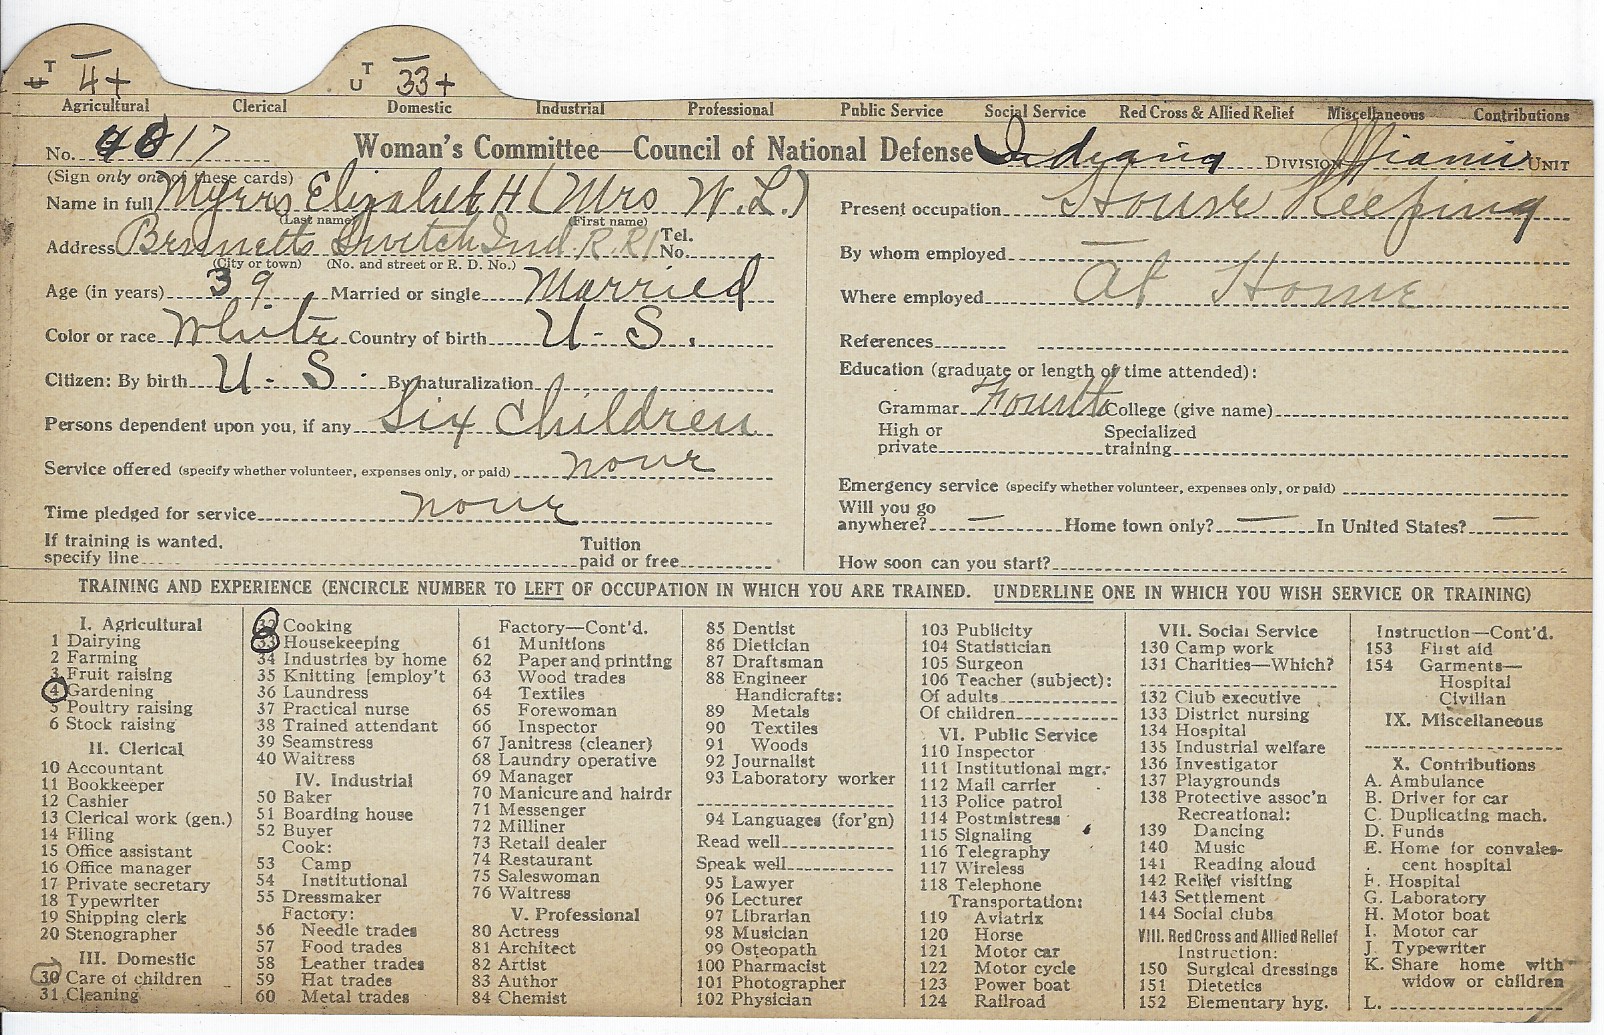 U T 4+ U T 33+
Agricultural Clerical Domestic Industrial Professional Public Service Social Service Red Cross & Allied Relief Miscellaneous Contributions
No. 4817 Woman's Committee—Council of National Defense Indiana DIVISION Miami UNIT
(Sign only one of these cards)
Name in full Myers Elizabeth H (Mrs W.L.)
(Last name) (First name)
Address Brunetts Switch Ind R.R1 Tel. No.
(City or town) (No. and street or R. D. No.)
Age (in years) 39 Married or single Married
Color or race White Country of birth U-S.
Citizen: By birth U-S. By naturalization
Persons dependent upon you, if any Six Children
Service offered (specify whether volunteer, expenses only, or paid) none
Time pledged for service none
If training is wanted, specify line Tuition paid or free
Present occupation House Keeping
By whom employed —
Where employed At Home
References
Education (graduate or length of time attended):
Grammar Fourth College (give name)
High or private Specialized training
Emergency service (specify whether volunteer, expenses only, or paid)
Will you go anywhere? — Home town only? — In United States? —
How soon can you start?
TRAINING AND EXPERIENCE (ENCIRCLE NUMBER TO LEFT OF OCCUPATION IN WHICH YOU ARE TRAINED. UNDERLINE ONE IN WHICH YOU WISH SERVICE OR TRAINING)
I. Agricultural
1 Dairying
2 Farming
3 Fruit raising
4 Gardening
5 Poultry raising
6 Stock raising
II. Clerical
10 Accountant
11 Bookkeeper
12 Cashier
13 Clerical work (gen.)
14 Filing
15 Office assistant
16 Office manager
17 Private secretary
18 Typewriter
19 Shipping clerk
20 Stenographer
III. Domestic
30 Care of children
31 Cleaning
32 Cooking
33 Housekeeping
34 Industries by home
35 Knitting [employ't
36 Laundress
37 Practical nurse
38 Trained attendant
39 Seamstress
40 Waitress
IV. Industrial
50 Baker
51 Boarding house
52 Buyer
Cook:
53 Camp
54 Institutional
55 Dressmaker
Factory:
56 Needle trades
57 Food trades
58 Leather trades
59 Hat trades
60 Metal trades
Factory—Cont'd.
61 Munitions
62 Paper and printing
63 Wood trades
64 Textiles
65 Forewoman
66 Inspector
67 Janitress (cleaner)
68 Laundry operative
69 Manager
70 Manicure and hairdr
71 Messenger
72 Milliner
73 Retail dealer
74 Restaurant
75 Saleswoman
76 Waitress
V. Professional
80 Actress
81 Architect
82 Artist
83 Author
84 Chemist
85 Dentist
86 Dietician
87 Draftsman
88 Engineer
Handicrafts:
89 Metals
90 Textiles
91 Woods
92 Journalist
93 Laboratory worker
94 Languages (for'gn)
Read well
Speak well
95 Lawyer
96 Lecturer
97 Librarian
98 Musician
99 Osteopath
100 Pharmacist
101 Photographer
102 Physician
103 Publicity
104 Statistician
105 Surgeon
106 Teacher (subject):
Of adults
Of children
VI. Public Service
110 Inspector
111 Institutional mgr.
112 Mail carrier
113 Police patrol
114 Postmistress
115 Signaling
116 Telegraphy
117 Wireless
118 Telephone
Transportation:
119 Aviatrix
120 Horse
121 Motor car
122 Motor cycle
123 Power boat
124 Railroad
VII. Social Service
130 Camp work
131 Charities—Which?
132 Club executive
133 District nursing
134 Hospital
135 Industrial welfare
136 Investigator
137 Playgrounds
138 Protective assoc'n
Recreational:
139 Dancing
140 Music
141 Reading aloud
142 Relief visiting
143 Settlement
144 Social clubs
VIII. Red Cross and Allied Relief
Instruction:
150 Surgical dressings
151 Dietetics
152 Elementary hyg.
Instruction—Cont'd.
153 First aid
154 Garments—
Hospital
Civilian
IX. Miscellaneous
X. Contributions
A. Ambulance
B. Driver for car
C. Duplicating mach.
D. Funds
E. Home for convales-
cent hospital
F. Hospital
G. Laboratory
H. Motor boat
I. Motor car
J. Typewriter
K. Share home with
widow or children
L.